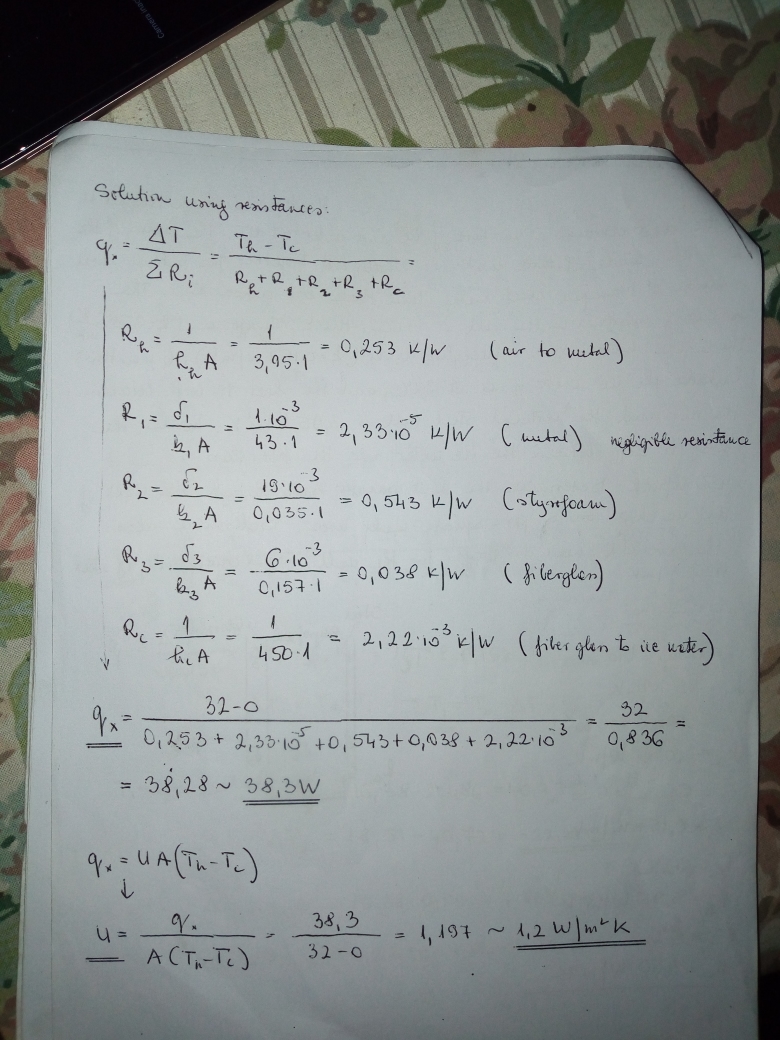 Camera
Solution using resistances:
qx = ΔT / ΣRi = Th - Tc / Rh + R1 + R2 + R3 + Rc =
Rh = 1 / hh A = 1 / 3,95·1 = 0,253 K/W (air to metal)
R1 = δ1 / k1 A = 1·10^-3 / 43·1 = 2,33·10^-5 K/W (metal) negligible resistance
R2 = δ2 / k2 A = 19·10^-3 / 0,035·1 = 0,543 K/W (styrofoam)
R3 = δ3 / k3 A = 6·10^-3 / 0,157·1 = 0,038 K/W (fiberglass)
Rc = 1 / hc A = 1 / 450·1 = 2,22·10^-3 K/W (fiber glass to ice water)
qx = 32-0 / 0,253 + 2,33·10^-5 + 0,543 + 0,038 + 2,22·10^-3 = 32 / 0,836 =
= 38,28 ~ 38,3W
qx = UA(Th - Tc)
U = qx / A(Th - Tc) = 38,3 / 32-0 = 1,197 ~ 1,2 W/m²K